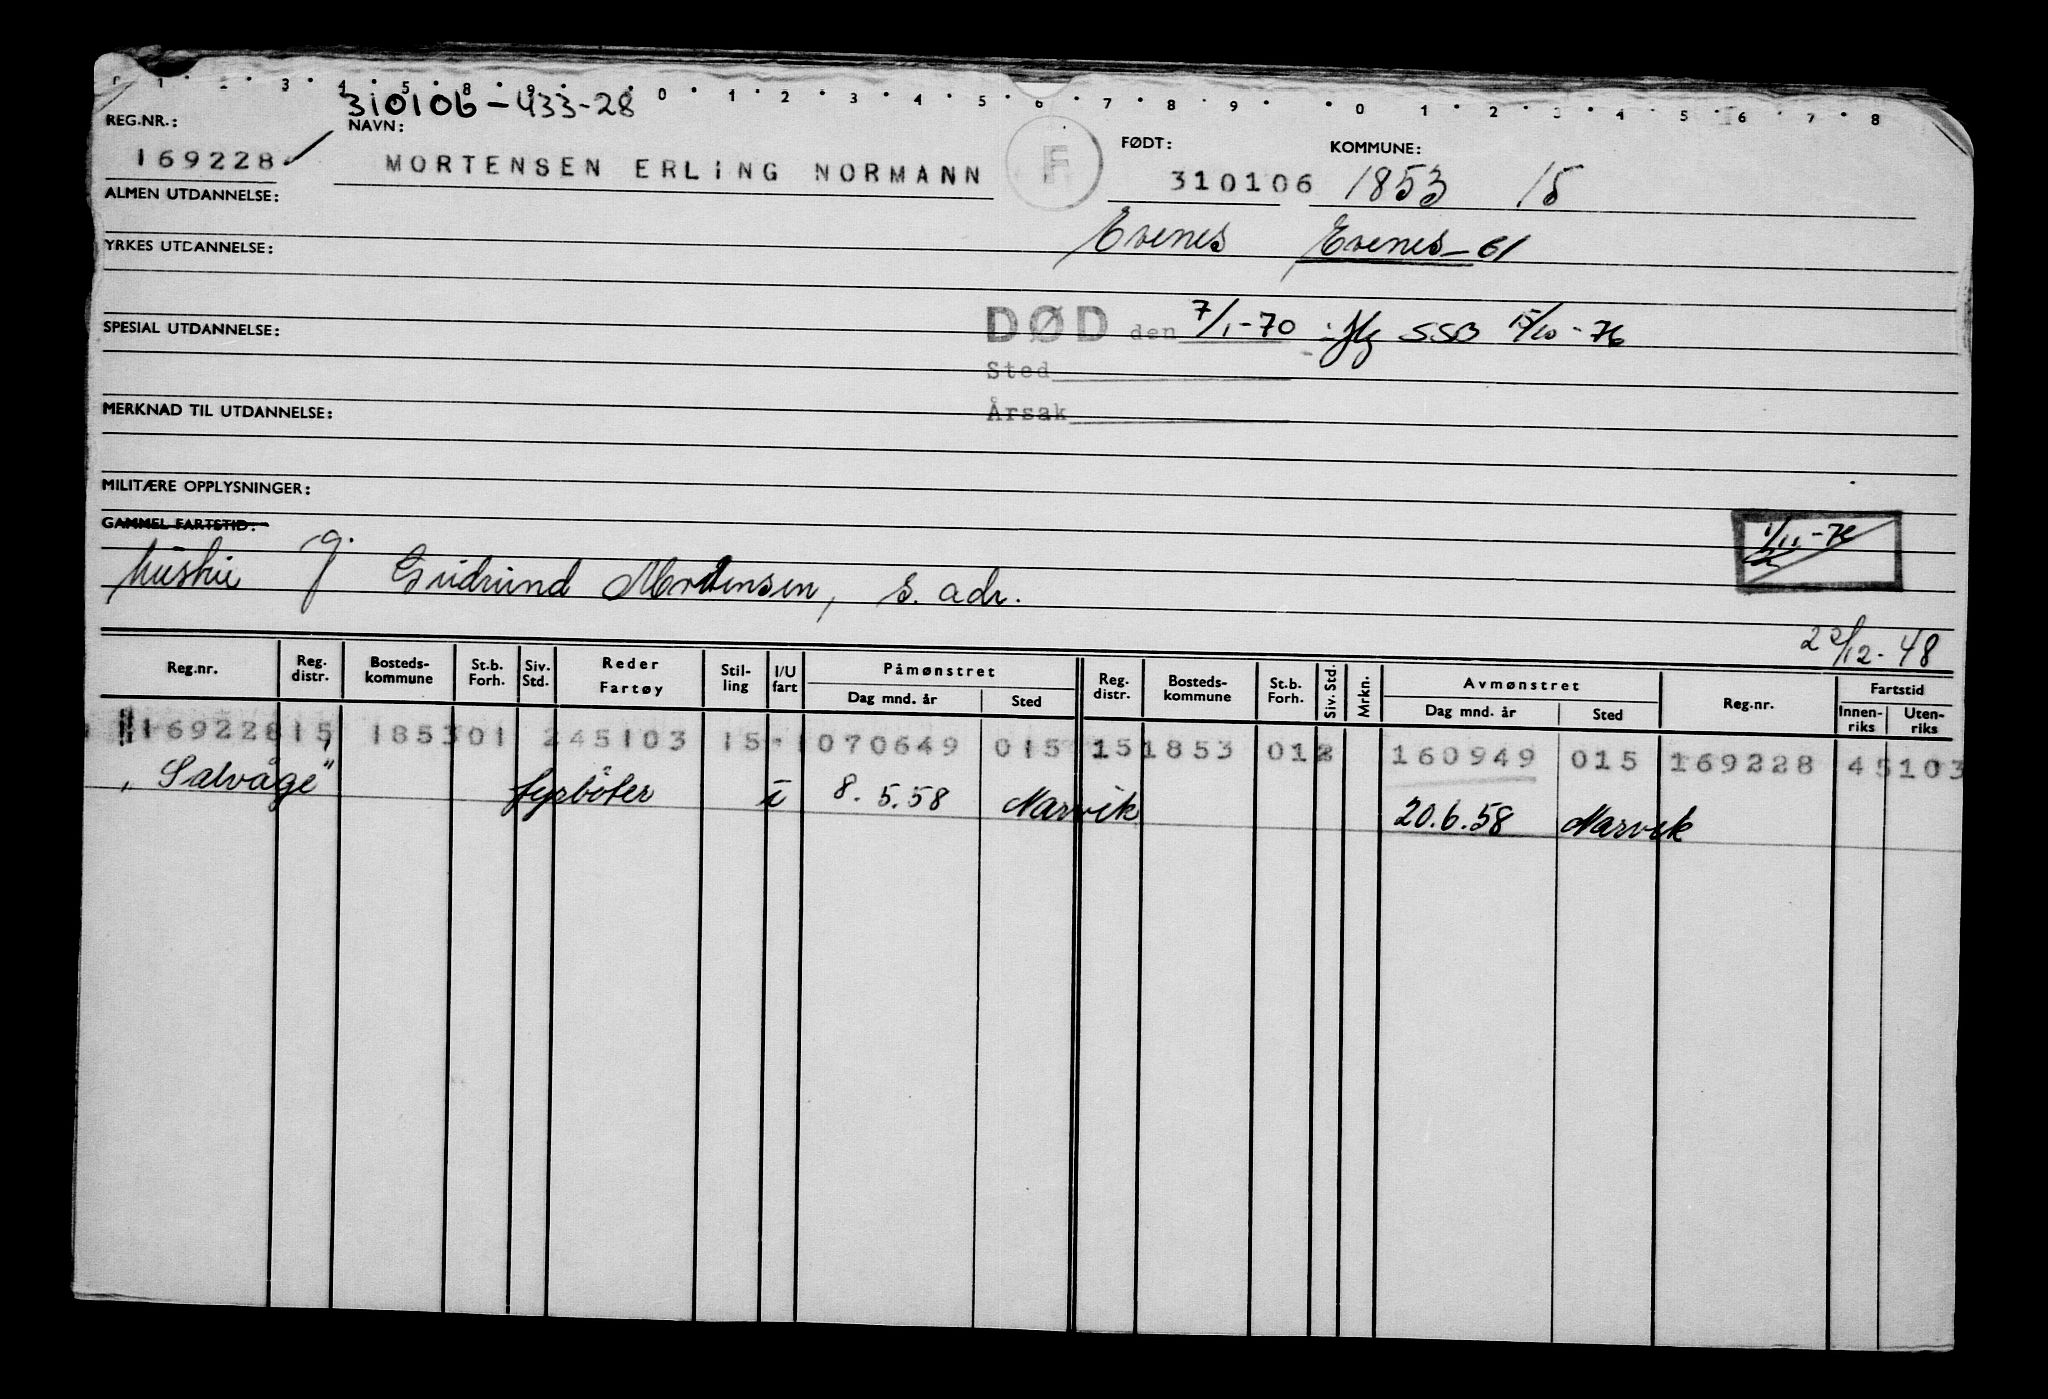 1 2 3 4 5 8 9 0 1 2 3 4 5 6 7 8 9 0 1 2 3 4 5 6 7 8
310106-433-28
REG.NR.: NAVN: FØDT: KOMMUNE:
169228 MORTENSEN ERLING NORMANN F 310106 1853 15
ALMEN UTDANNELSE:
Evenes Evenes-61
YRKES UTDANNELSE:
DØD den 7/1-70 SSB 15/10-76
SPESIAL UTDANNELSE:
Sted
MERKNAD TIL UTDANNELSE: Årsak
MILITÆRE OPPLYSNINGER:
GAMMEL FARTSTID:
1/11-76
hustru G. Gudrund Mortensen, s. adr.
22/12-48
Reg.nr. Reg. distr. Bosteds-kommune St.b. Forh. Siv. Std. Reder Fartøy Stil-ling I/U fart Påmønstret Dag mnd. år Sted Reg. distr. Bosteds-kommune St.b. Forh. Siv. Std. Mrkn. Avmønstret Dag mnd. år Sted Reg.nr. Fartstid Innen-riks Uten-riks
169228 15 1853 01 245103 15-1 070649 015 15 1853 012 160949 015 169228 45103
"Salvåge" fyrbøter i 8.5.58 Narvik 20.6.58 Narvik